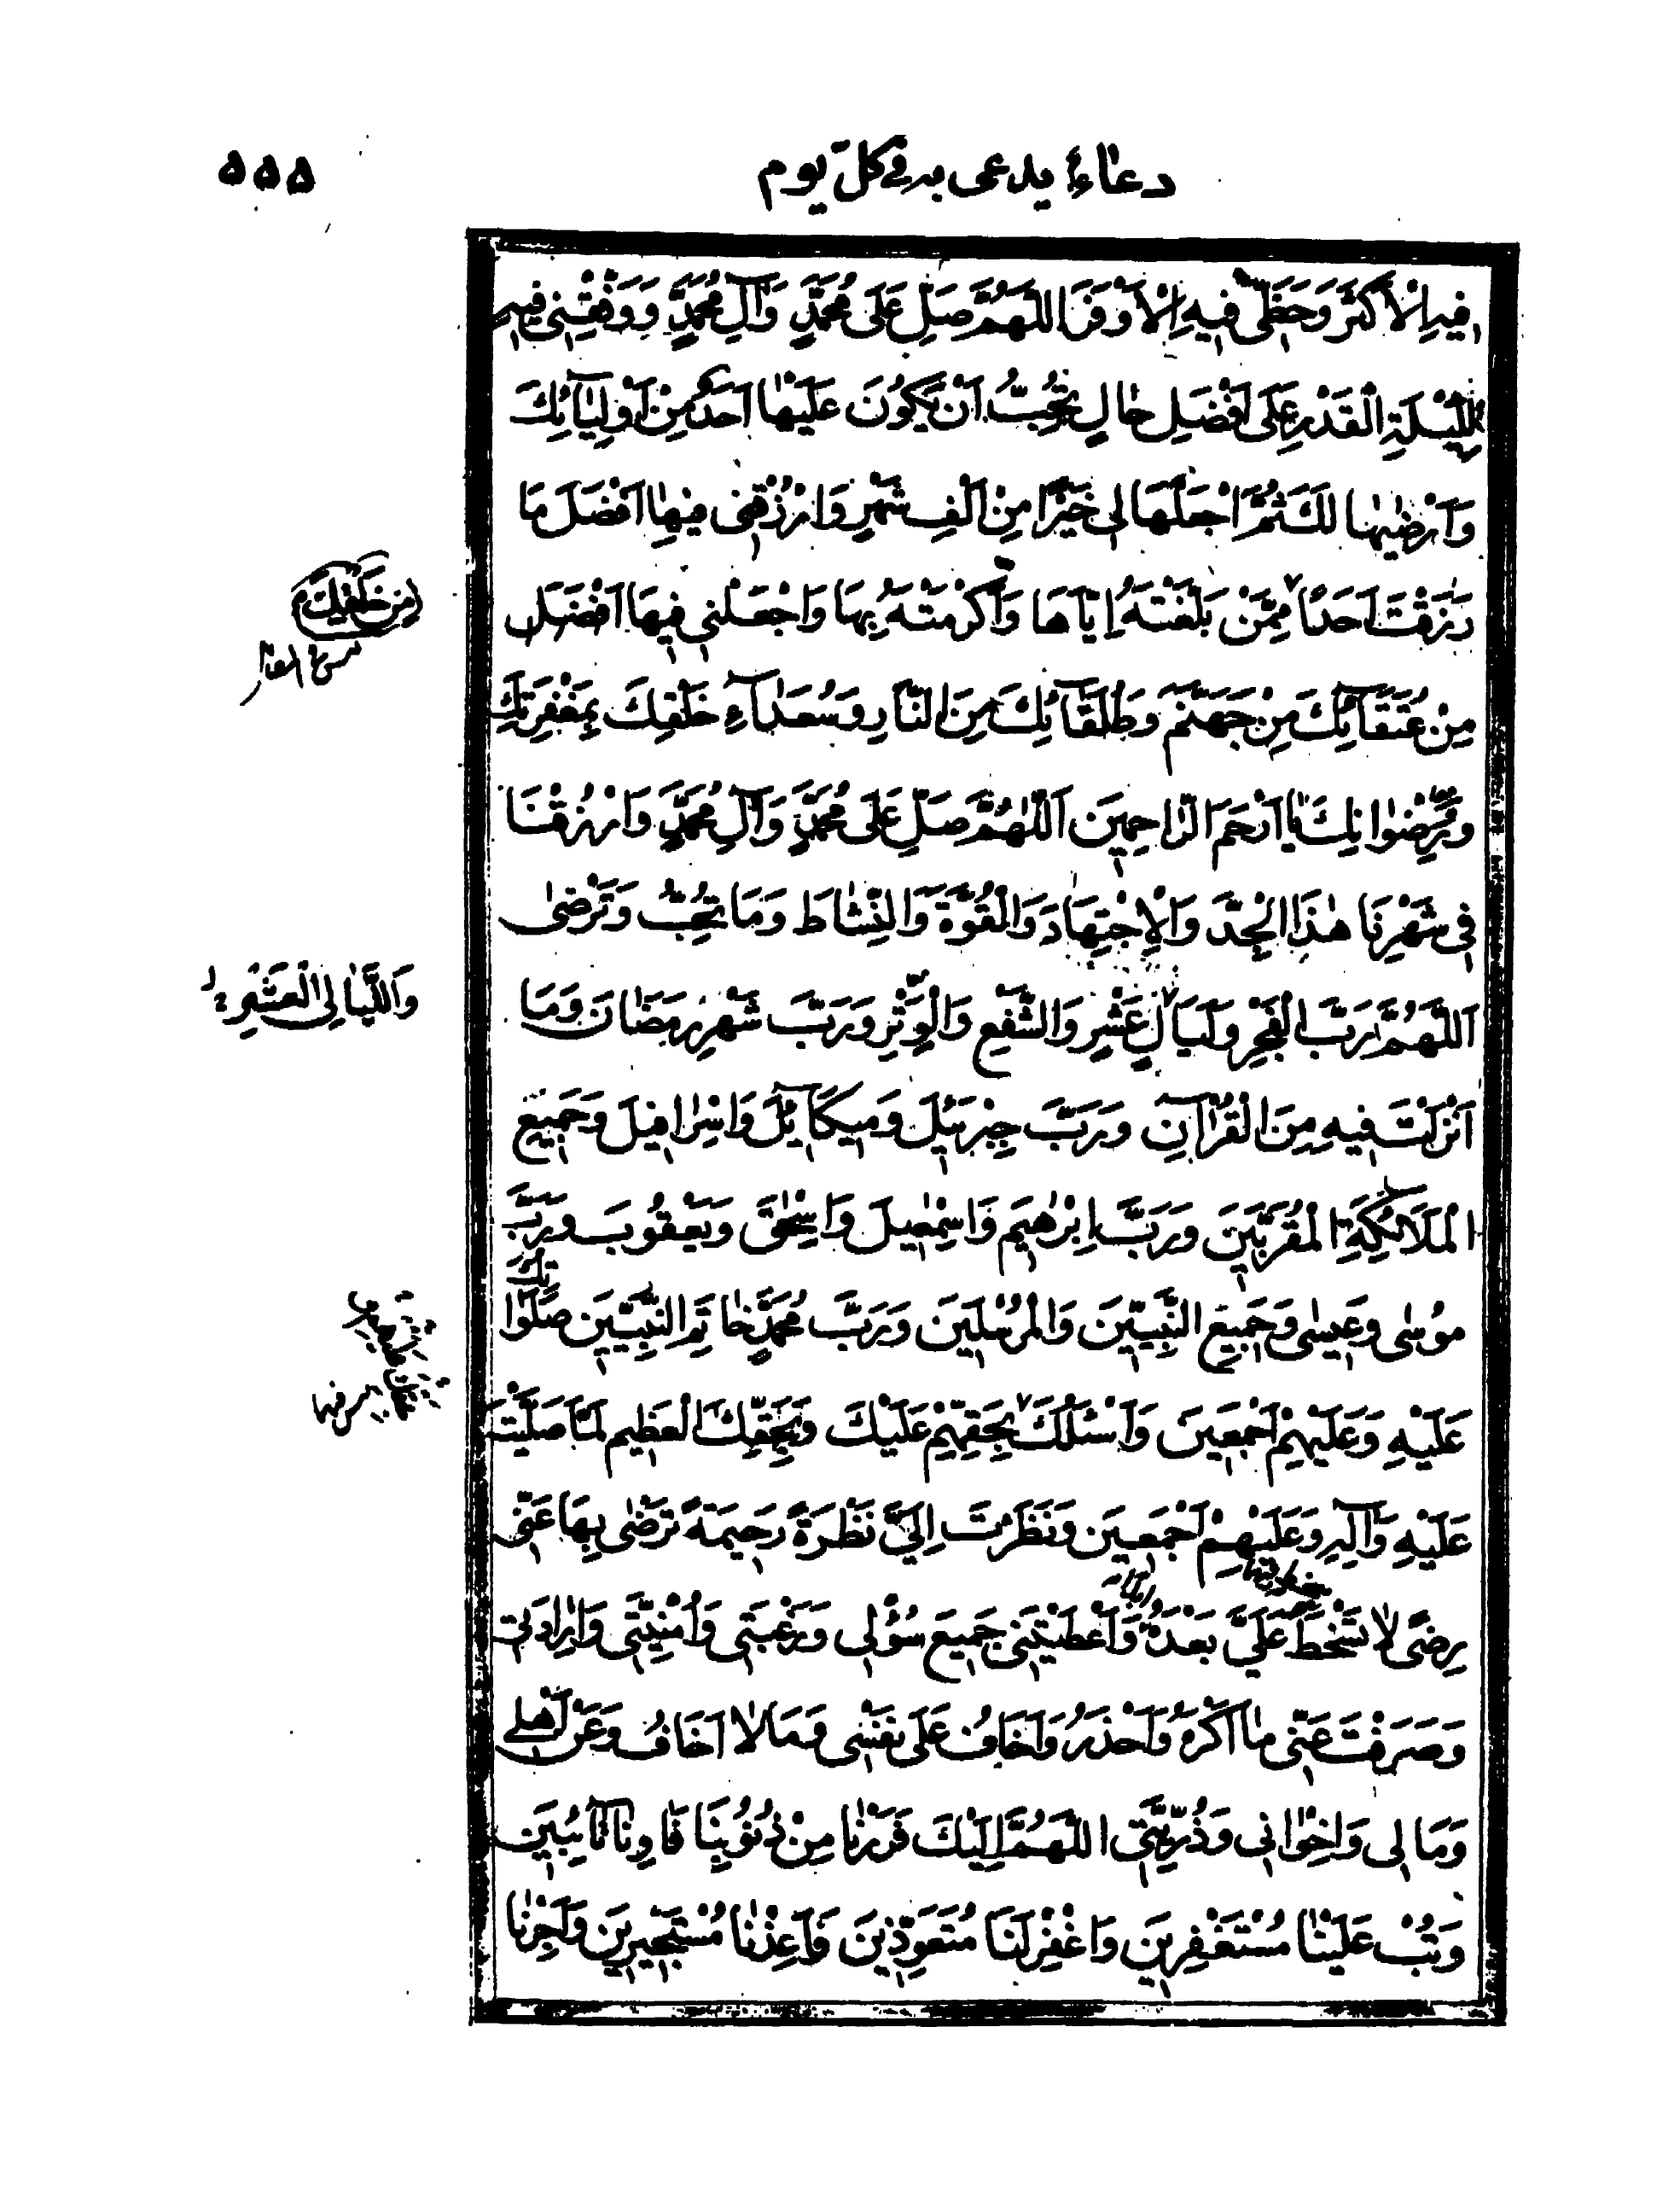 دعاء يدعى به في كل يوم
۵۵۵
فِيهِ الْأَكْثَرَ وَحَظِّي فِيهِ الْأَوْفَرَ اللَّهُمَّ صَلِّ عَلَى مُحَمَّدٍ وَآلِ مُحَمَّدٍ وَوَفِّقْنِي فِيهِ
لِلَيْلَةِ الْقَدْرِ عَلَى أَفْضَلِ حَالٍ تُحِبُّ أَنْ يَكُونَ عَلَيْهَا أَحَدٌ مِنْ أَوْلِيَائِكَ
وَأَرْضِيهَا لَكَ ثُمَّ اجْعَلْهَا لِي خَيْرًا مِنْ أَلْفِ شَهْرٍ وَارْزُقْنِي فِيهَا أَفْضَلَ مَا
رَزَقْتَ أَحَدًا مِمَّنْ بَلَّغْتَهُ إِيَّاهَا وَأَكْرَمْتَهُ بِهَا وَاجْعَلْنِي فِيهَا أَفْضَلَ
مِنْ عُتَقَائِكَ مِنْ جَهَنَّمَ وَطُلَقَائِكَ مِنَ النَّارِ وَسُعَدَاءِ خَلْقِكَ بِمَغْفِرَتِكَ
وَرِضْوَانِكَ يَا أَرْحَمَ الرَّاحِمِينَ اَللَّهُمَّ صَلِّ عَلَى مُحَمَّدٍ وَآلِ مُحَمَّدٍ وَارْزُقْنَا
فِي شَهْرِنَا هٰذَا الْجِدَّ وَالْإِجْتِهَادَ وَالْقُوَّةَ وَالنَّشَاطَ وَمَا تُحِبُّ وَتَرْضٰى
اَللَّهُمَّ رَبَّ الْفَجْرِ وَلَيَالٍ عَشْرٍ وَالشَّفْعِ وَالْوَتْرِ وَرَبَّ شَهْرِ رَمَضَانَ وَمَا
أَنْزَلْتَ فِيهِ مِنَ الْقُرْآنِ وَرَبَّ جِبْرَئِيلَ وَمِيكَائِيلَ وَإِسْرَافِيلَ وَجَمِيعِ
الْمَلَائِكَةِ الْمُقَرَّبِينَ وَرَبَّ إِبْرٰهِيمَ وَإِسْمٰعِيلَ وَإِسْحٰقَ وَيَعْقُوبَ وَرَبَّ
مُوسٰى وَعِيسٰى وَجَمِيعِ النَّبِيِّينَ وَالْمُرْسَلِينَ وَرَبَّ مُحَمَّدٍ خَاتَمِ النَّبِيِّينَ صَلَوَاتُكَ
عَلَيْهِ وَعَلَيْهِمْ أَجْمَعِينَ وَأَسْئَلُكَ بِحَقِّهِمْ عَلَيْكَ وَبِحَقِّكَ الْعَظِيمِ لَمَّا صَلَّيْتَ
عَلَيْهِ وَآلِهِ وَعَلَيْهِمْ أَجْمَعِينَ وَنَظَرْتَ إِلَيَّ نَظْرَةً رَحِيمَةً تَرْضٰى بِهَا عَنِّي
رِضًى لَا تَسْخَطُ عَلَيَّ بَعْدَهُ وَأَعْطَيْتَنِي جَمِيعَ سُؤْلِي وَرَغْبَتِي وَأُمْنِيَّتِي وَإِرَادَتِي
وَصَرَفْتَ عَنِّي مَا أَكْرَهُ وَأَحْذَرُ وَأَخَافُ عَلَى نَفْسِي وَمَا لَا أَخَافُ وَعَنْ أَهْلِي
وَمَالِي وَإِخْوَانِي وَذُرِّيَّتِي اللَّهُمَّ إِلَيْكَ فَرَرْنَا مِنْ ذُنُوبِنَا فَآوِنَا تَائِبِينَ
وَتُبْ عَلَيْنَا مُسْتَغْفِرِينَ وَاغْفِرْ لَنَا مُتَعَوِّذِينَ وَأَعِذْنَا مُسْتَجِيرِينَ وَأَجِرْنَا
مِنْ خَلْقِكَ
وَاللَّيَالِي الْعَشْرِ